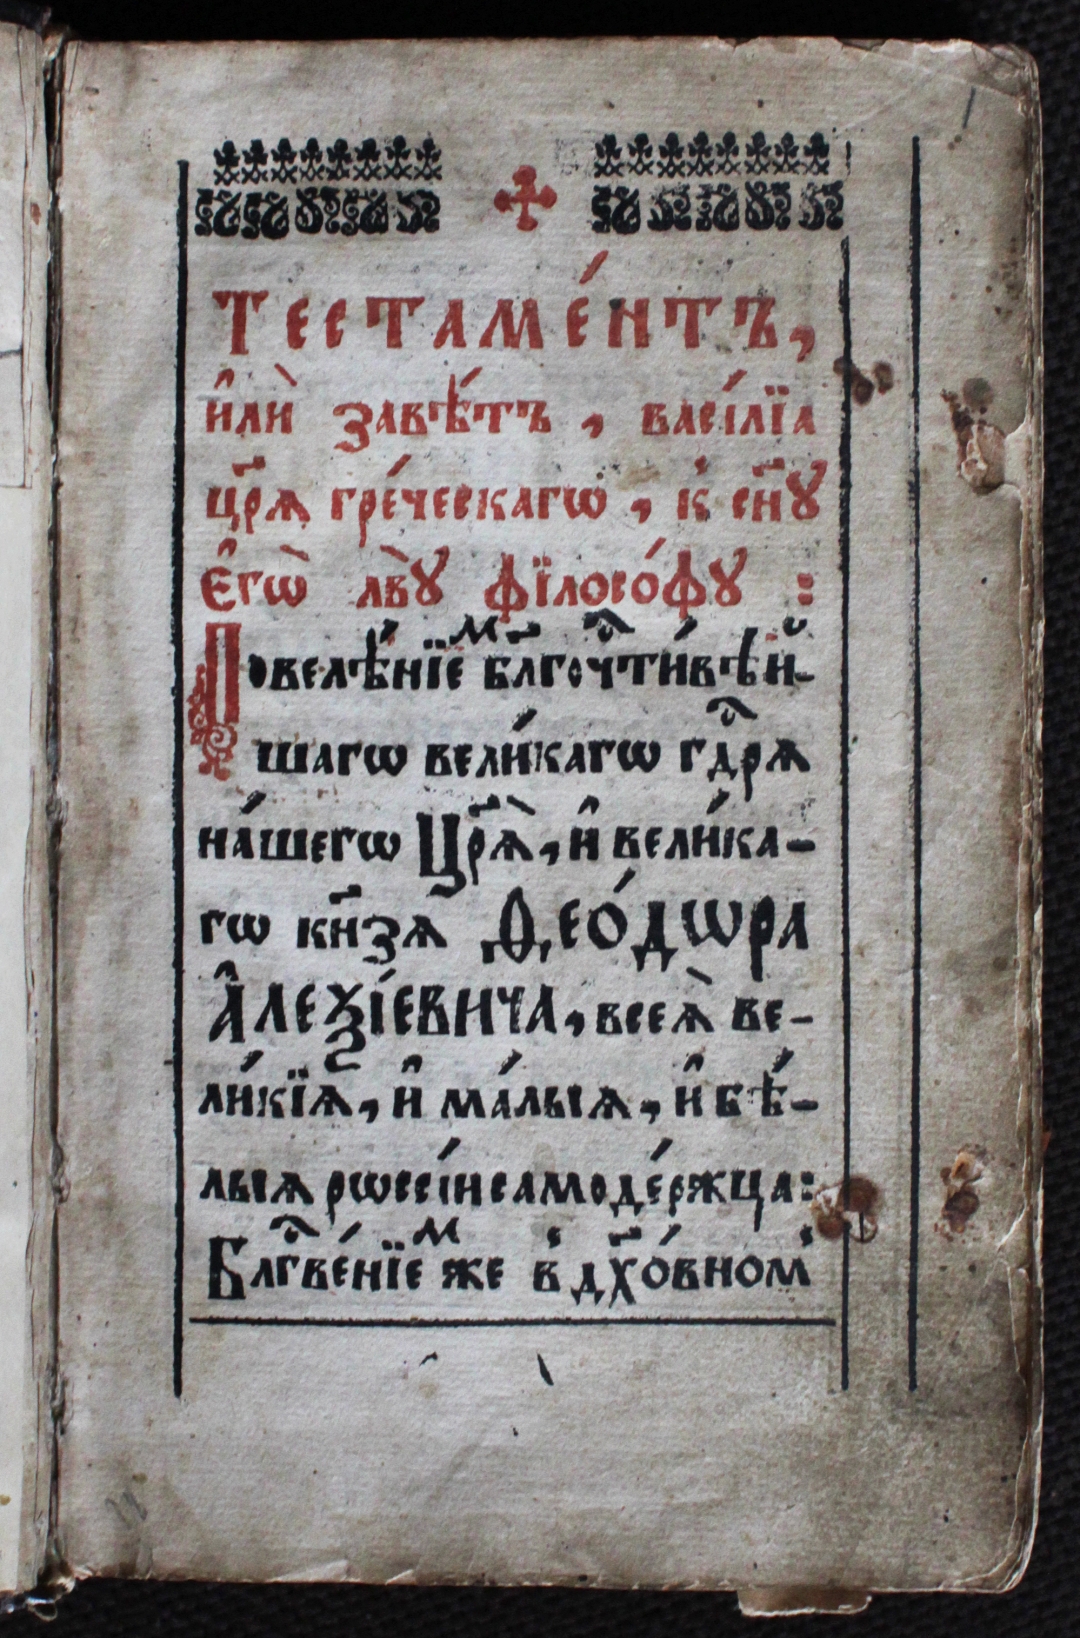 Тестаме́нтъ,
и҆лѝ завѣ́тъ, васі́лїа
цр҃ѧ гре́ческагѡ, к̾ сн҃ꙋ
є҆гѡ̀ лв̀ꙋ фїлосо́фꙋ :
Повелѣ́нїеⷨ бл҃гочⷭ҇ти́вѣй-
шагѡ вели́кагѡ гдⷭ҇рѧ
на́шегѡ Цр҃ѧ̀, и҆ вели́ка-
гѡ кн҃зѧ Ѳео́дѡра
А҆леѯі́евича, всеѧ̀ ве-
ли́кїѧ, и҆ ма́лыѧ, и҆ бѣ́-
лыѧ рѡссі́и самоде́ржца:
Блгⷭ҇ве́нїеⷨ же в̾ дх҃о́вном̾